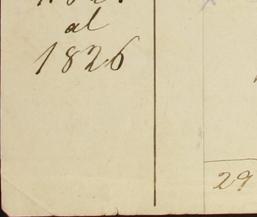 al
1826
29